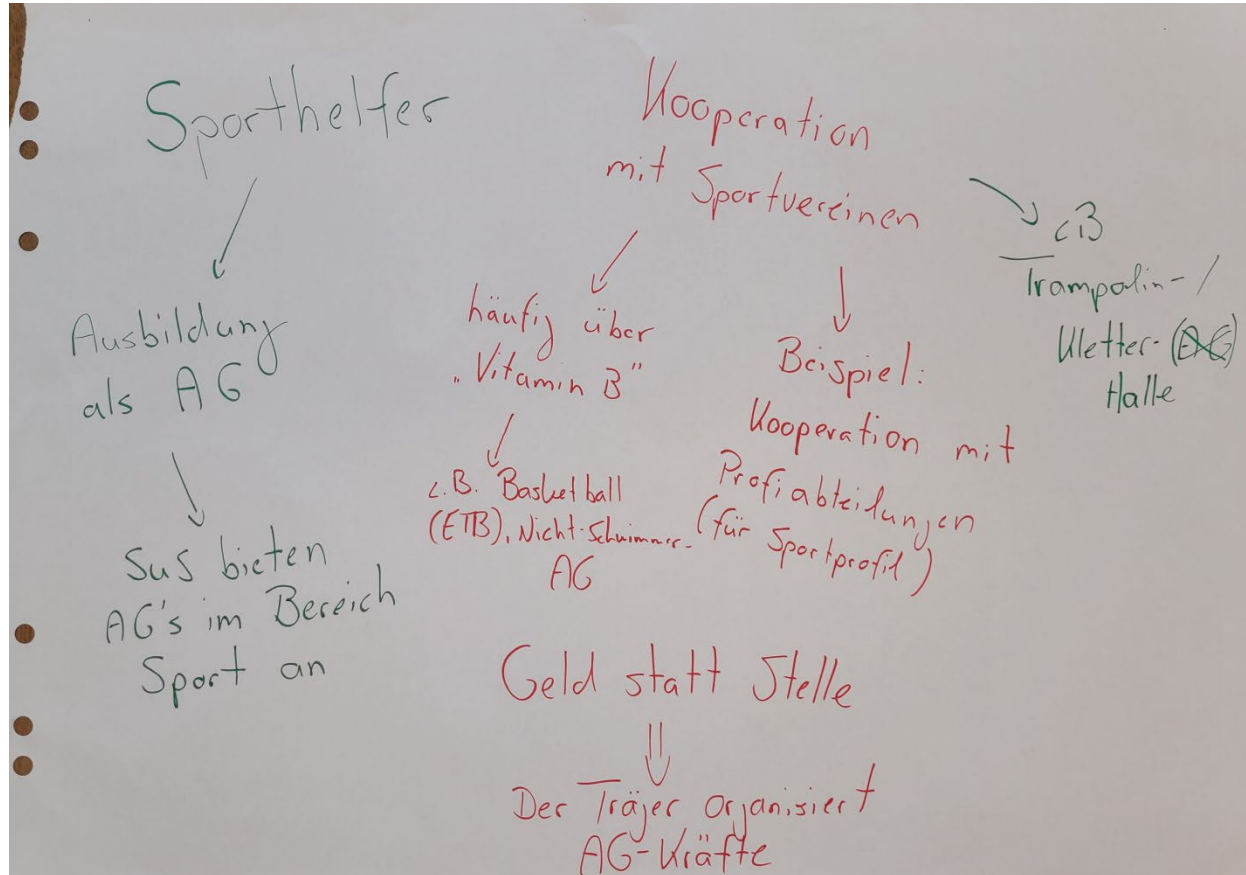 Sporthelfer
Ausbildung
als AG
SuS bieten
AG's im Bereich
Sport an
Kooperation
mit Sportvereinen
häufig über
„Vitamin B"
z.B. Basketball
(ETB), Nicht-Schwimmer-
AG
Beispiel:
Kooperation mit
Profiabteilungen
(für Sportprofil)
zB
Trampolin-/
Kletter-
Halle
Geld statt Stelle
Der Träger organisiert
AG-Kräfte